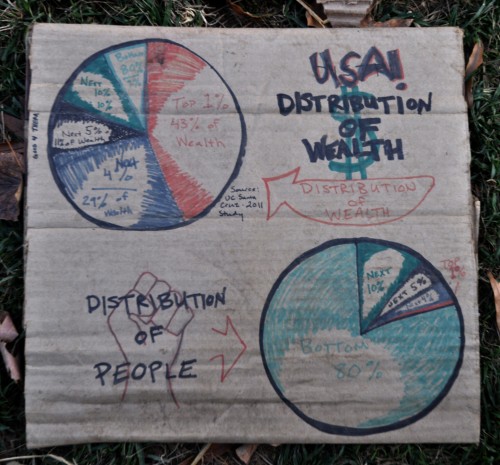 USA!
DISTRIBUTION
OF
WEALTH
Bottom
80%
7%
Next
10%
10%
Next 5%
11% of Wealth
Next
4%
29% of
Wealth
Top 1%
43% of
Wealth
Source:
UC Santa
Cruz - 2011
Study
DISTRIBUTION
OF
WEALTH
DISTRIBUTION
OF
PEOPLE
NEXT
10%
NEXT 5%
Next 4%
TOP
1%
BOTTOM
80%